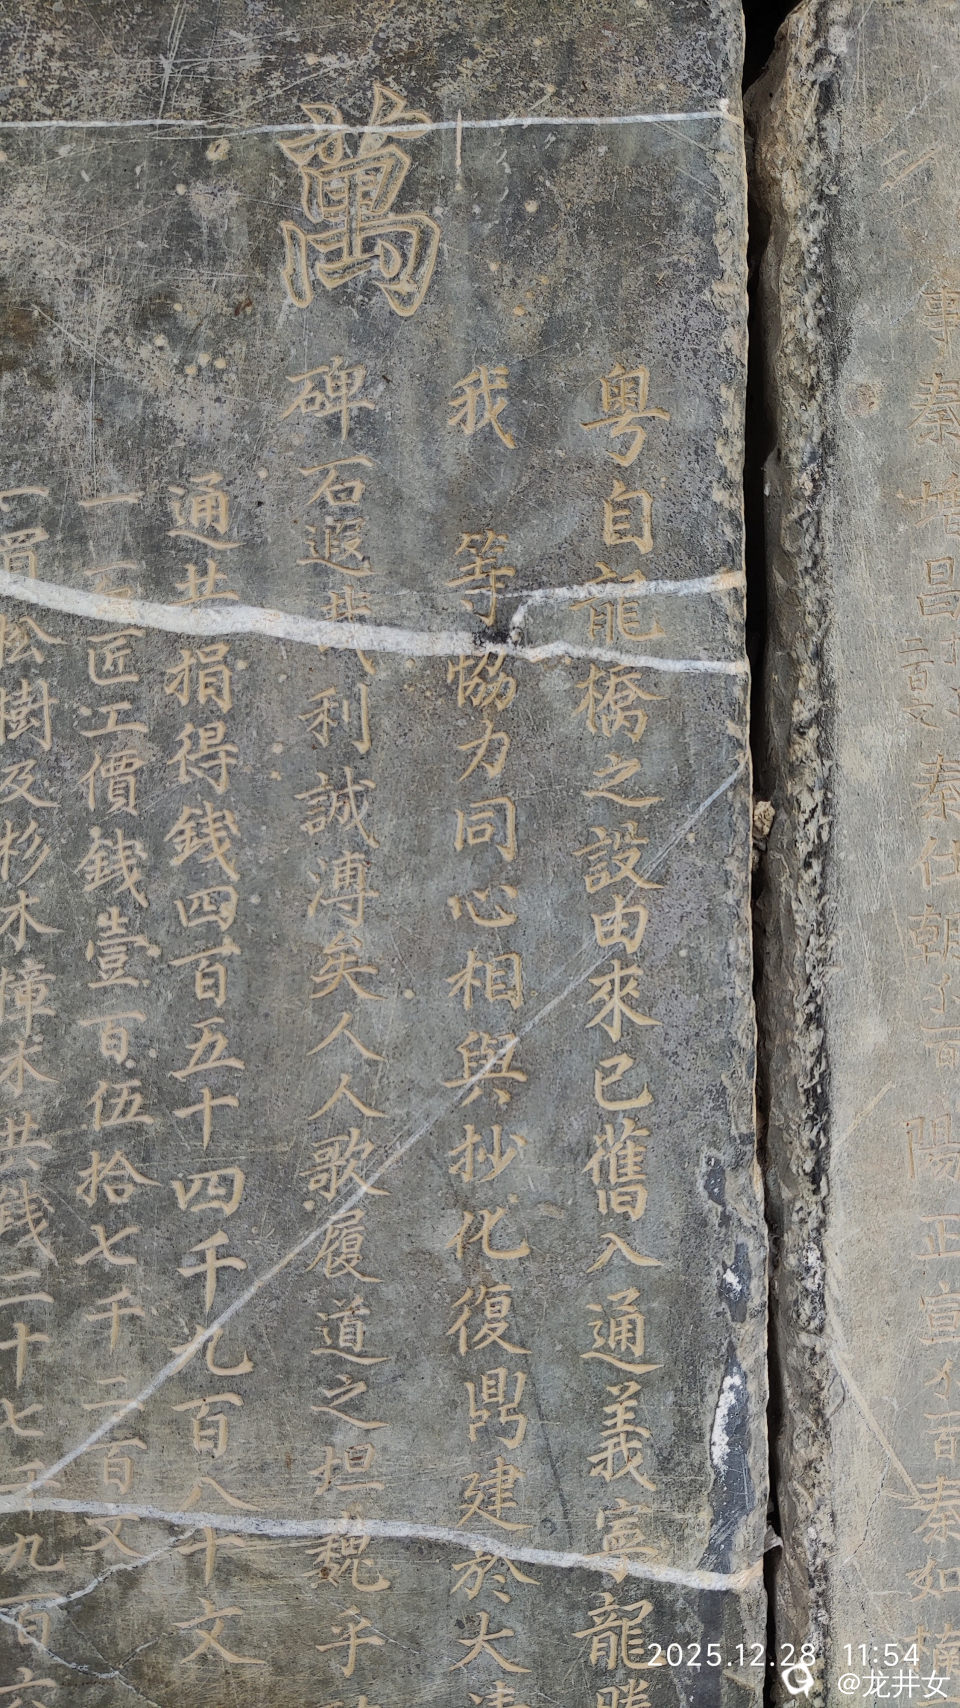 萬
粤自龍橋之設由來已舊入通義寧龍勝
我 等協力同心相與抄化復鼎建於大清
碑石遐我利誠溥矣人人歌履道之坦巍乎
通共捐得錢四百五十四千九百八十文
一石匠工價錢壹百伍拾七千二百文
一買松樹及杉木樟木共錢二十七千九百六
事秦 昌 秦仕朝 陽正宣 秦如
2025.12.28 11:54
@龙井女